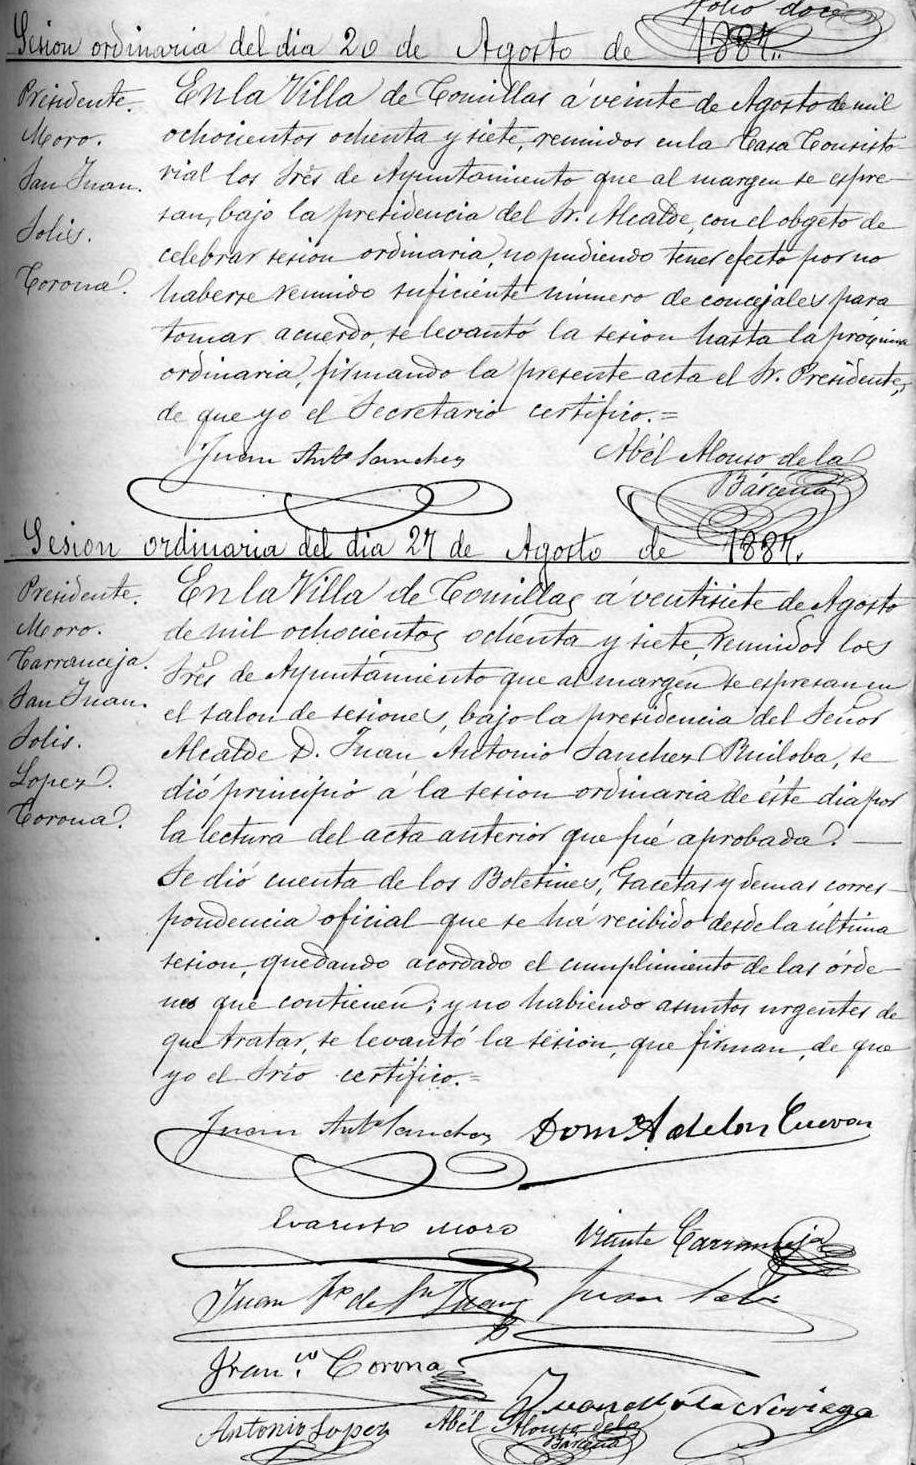 Folio doce
Sesion ordinaria del dia 20 de Agosto de 1887.
Presidente.
Moro.
San Juan.
Solis.
Corona.
En la Villa de Comillas á veinte de Agosto de mil
ochocientos ochenta y siete, reunidos en la Casa Consisto
rial los Sres de Ayuntamiento que al margen se espre-
san, bajo la presidencia del Sr. Alcalde, con el obgeto de
celebrar sesion ordinaria, no pudiendo tener efecto por no
haberse reunido suficiente número de concejales para
tomar acuerdo, se levantó la sesion hasta la próxima
ordinaria, firmando la presente acta el Sr. Presidente,
de que yo el Secretario certifico.=
Juan Anto Sanchez
Abél Alonso de la
Bárcena
Sesion ordinaria del dia 27 de Agosto de 1887.
Presidente.
Moro.
Carranceja.
San Juan.
Solis.
Lopez.
Corona.
En la Villa de Comillas á ventisiete de Agosto
de mil ochocientos ochenta y siete, reunidos los
Sres de Ayuntamiento que al margen se espresan en
el salon de sesiones, bajo la presidencia del Señor
Alcalde D. Juan Antonio Sanchez Ruiloba, se
dió principio á la sesion ordinaria de éste dia por
la lectura del acta anterior que fué aprobada. —
Se dió cuenta de los Boletines, Gacetas y demas corres-
pondencia oficial que se há recibido desde la última
sesion, quedando acordado el cumplimiento de las órde-
nes que contienen; y no habiendo asuntos urgentes de
que tratar, se levantó la sesion, que firman, de que
yo el Srio certifico.=
Juan Anto Sanchez
Domo A de los Cuevas
Evaristo Moro
Vicente Carranceja
Juan Fo de Sn Juan
Juan Solis
Franco Corona
Noriega
Antonio Lopez
Abél Alonso de la
Bárcena